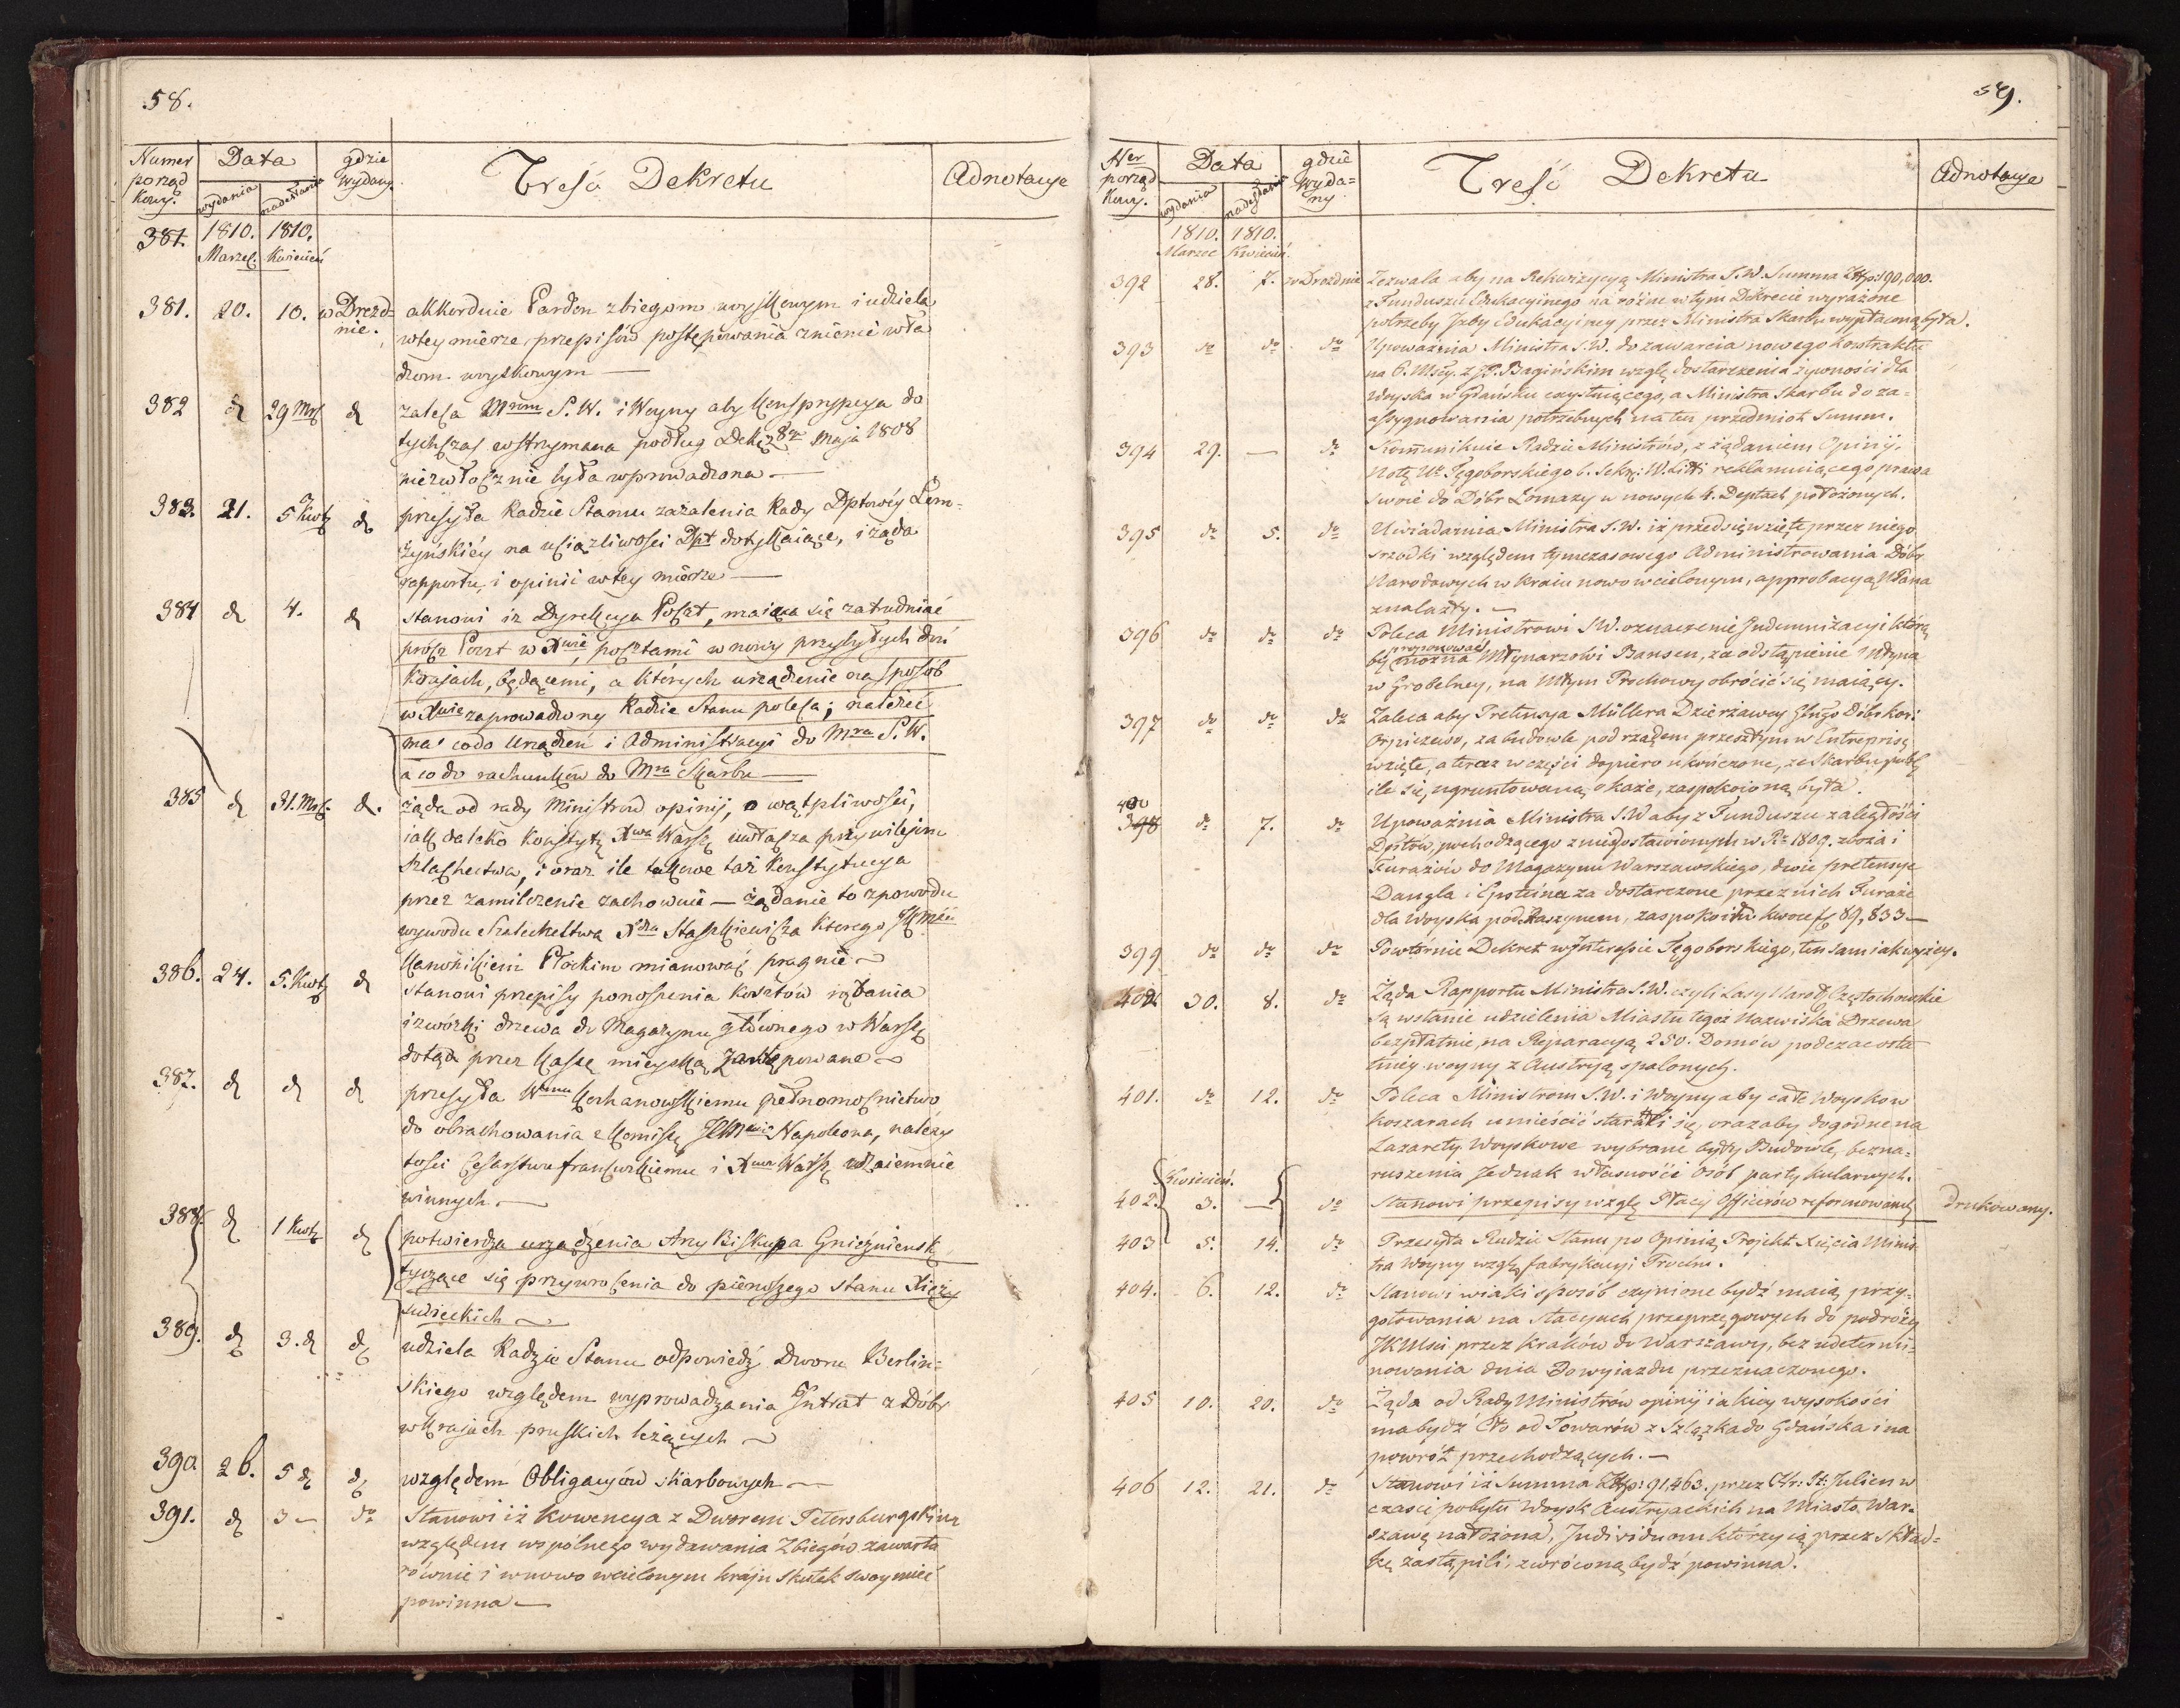 58.
Numer porząd kowy. Data wydania nadesłania gdzie wydany. Treść Dekretu Adnotacye
381. 1810. 1810.
Marzec. Kwiecień
381. 20. 10. w Drezd= akkorduie Pardon zbiegom woyskowym i udziela
nie. w tey mierze przepisów postępowania zmienić wła
dzom woyskowym —
382 d 29 Mrs d zaleca Mrom S. W. i Woyny aby Konskrypcya do
tychczas wstrzymana podług Dek: z 8go Maja 1808
niezwłocznie była wprowadzona —
383. 21. 5 Kwt d przesyła Radzie Stanu zażalenia Rady Dptowéy Łom=
żyńskiéy na uciążliwości Dpt dotykaiące, i żąda
rapportu, i opinii w tey mierze —
384 d 4. d stanowi iż Dyrekcya Poczt, maiąca się zatrudniać
prócz Poczt w Xwie, pocztami w nowy przybyłych dziś
Krajach, będącemi, a których urządzenie na sposób
w Xwie zaprowadzony Radzie Stanu poleca; należeć
ma co do Urządzeń i Administracyi do Mra S. W.
a co do rachunków do Mra Skarbu —
385 d 31. Mrs d. żąda od rady Ministrów opinij, o wątpliwości,
iak daleko Konstyt: Xwa Warsz uwłacza przywilejom
Szlachectwa, i oraz ile takowe taż Konstytucya
przez zamilczenie zachowuie — żądanie to z powodu
wywodu Szlachectwa Xdza Staszkiewicza którego JKMść
Kanonikiem Płockim mianować pragnie —
386. 24. 5. Kwt d stanowi przepisy ponoszenia kosztów rąbania
i zwózki drzewa do Magazynu głównego w Warsz
dotąd przez Kassę mieyską zastępowane —
387. d d d przesyła Wmu Kochanowskiemu pełnomocnictwo
do obrachowania z Komiss JCKMci Napoleona, należy
tości Cesarstwu francuzkiemu i Xwu Warsz wzaiemnie
winnych —
388. d 1 Kwt d potwierdza urządzenia Arcy Biskupa Gnieźniensk
tyczące się przywrócenia do pierwszego stanu Xięży
świeckich —
389. d 3. d d udziela Radzie Stanu odpowiedź Dworu Berlin=
skiego względem wyprowadzania Intrat z Dóbr
w Krajach pruskich leżących —
390 26. 5 d d względem Obligacyów skarbowych —
391. d 3 — do Stanowi iż Kowencya z Dworem Petersburgskim
względem wspólnego wydawania Zbiegów zawarta
równie i w nowo wcielonym kraju skutek swoy mieć
powinna —
59.
Ner porząd kowy. Data wydania nadesłania gdzie wyda= ny Treść Dekretu Adnotacye
1810. 1810.
Marzec Kwiecień.
392 28. 7. w Dreźdnie Zezwala aby na Rekwizycyą Ministra S. W. Summa Złtp: 190,000.
z Funduszu Edukacyinego na różne w tym Dekrecie wyrażone
potrzeby Izby Edukacyiney przez Ministra Skarbu wypłaconą była.
393 do do do Upoważnia Ministra S. W. do zawarcia nowego kontraktu
na 6. Msy. z JP. Bagińskim wzglę dostarczenia żywności dla
Woyska w Gdańsku exystuiącego, a Ministra Skarbu do za=
assygnowania potrzebnych na ten przedmiot Summ.
394 29. — do Kommunikuie Radzie Ministrów, z żądaniem Opinij.
Notę Ur Tęgoborskiego b. Sekr: W. Litti reklamuiącego prawa
swoie do Dóbr Łomazy w nowych 4. Deptach położonych.
395 do 5. do Uwiadamia Ministra S. W. iż przedsięwzięte przez niego
srzodki względem tymczasowego Administrowania Dóbr
Narodowych w kraiu nowo wcielonym, approbacyą NPana
znalazły. —
396 do do do Poleca Ministrowi S W. oznaczenie Indemnizacyi którą
proponować
by można Młynarzowi Bansen, za odstąpienie Młyna
w Grobelney, na Młyn Prochowy obrócić się maiący.
397 do do do Zaleca aby Pretensya Müllera Dzierżawcy Złego dóbr kor:
Orpiszewo, za budowle pod rządem przeszłym w Entreprisę
wzięte, a teraz w części dopiero ukończone, ze Skarbu publ
ile się ugruntowaną okaże, zaspokoioną była.
400
398 do 7. do Upoważnia Ministra S. W aby z Funduszu zaległości
Dptów, pochodzącego z niedostawionych w Rr 1809. zboża i
Furażów do Magazynu Warszawskiego, dwie pretensye
Dangla i Epsteina za dostarczone przez nich Furaże
dla Woyska pod Raszynem, zaspokoił w kwocie f 89,833 —
399 do do do Powtórnie Dekret w Interessie Tęgoborskiego, ten sam iak wyżey.
30. 8. do Żąda Rapportu Ministra S. W. czyli Lasy Narod Częstochowskie
są w stanie udzielenia Miastu tegoż Nazwiska Drzewa
bezpłatnie, na Reparacyą 250. Domów podczas osta
tniey woyny z Austryą spalonych.
401. do 12. do Poleca Ministrom S. W. i Woyny aby całe Woysko w
koszarach umieścić starali się, oraz aby dogodne na
Lazarety Woyskowe wybrane były Budowle, bezna=
ruszenia Jednak własności Osób partykularnych.
Kwiecień.
402. 3. — do Stanowi przepisy wzglę Płacy Officerów reformowanych Drukowany.
403 5. 14. do Przesyła Radzie Stanu po Opinią Projekt Xięcia Minis
tra Woyny wzglę fabrykacyi Prochu.
404. 6. 12. do Stanowi w iaki sposób czynione bydź maią przy=
gotowania na Stacyach przeprzęgowych do podróży
JKMści przez Kraków do Warszawy, bez udetermi=
nowania dnia Do wyiazdu przeznaczonego.
405 10. 20. do Żąda od Rady Ministrów opinij iakiey wysokości
ma bydź Cło od Towarów z Szlązka do Gdańska i na
powrót przechodzących. —
406 12. 21. do Stanowi iż Summa Złtp: 91,463. przez Hr: St: Julien w
czasie pobytu Woysk Austryackich na Miasto War=
szawę nałożona, Individuom którzy ią przez skład=
kę zastąpili, zwróconą bydź powinna.